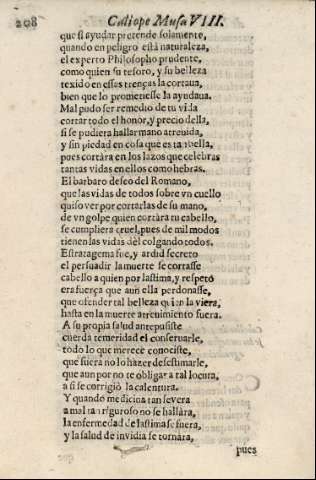 208 Caliope Musa VIII.
que si ayudar pretende solamente,
quando en peligro està naturaleza,
el experto Philosopho prudente,
como quien su tesoro, y su belleza
texido en essas trenças la cortaua,
bien que lo prometiesse la ayudaua.
Mal pudo ser remedio de tu vida
cortar todo el honor, y precio della,
si se pudiera hallar mano atreuida,
y sin piedad en cosa que es tan bella,
pues cortàra en los lazos que celebras
tantas vidas en ellos como hebras.
El barbaro desseo del Romano,
que las vidas de todos sobre vn cuello
quiso ver por cortarlas de su mano,
de vn golpe quien cortàra tu cabello,
se cumpliera cruel, pues de mil modos
tienen las vidas dèl colgando todos.
Estratagema fue, y ardid secreto
el persuadir la muerte se cortasse
cabello a quien por lastima, y respeto
era fuerça que aun ella perdonasse,
que ofender tal belleza quien la viera,
hasta en la muerte atreuimiento fuera.
A su propia salud antepusiste
cuerda temeridad el conseruarle,
todo lo que merece conociste,
que fuera no lo hazer desestimarle,
que aun por no te obligar a tal locura,
a si se corrigiò la calentura.
Y quando medicina tan seuera
a mal tan riguroso no se hallàra,
la enfermedad de lastima se fuera,
y la salud de inuidia se tornàra,
pues